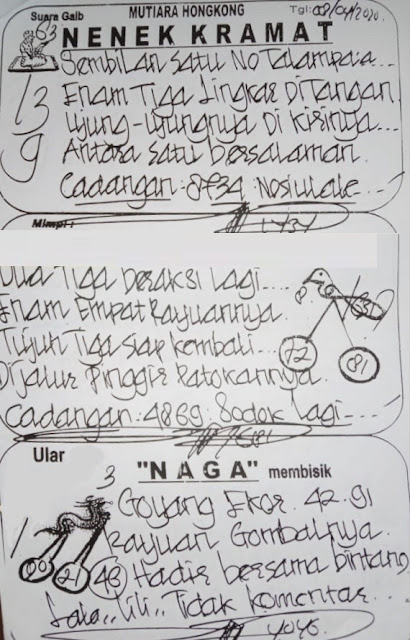 Suara Gaib MUTIARA HONGKONG Tgl: 08/04/2020.
63 NENEK KRAMAT
Sembilan Satu No Talampaia...
13 Enam Tiga Lingkar DiTangan.
Ujung-Ujungnya Di Kirinya...
9 Antara Satu bersalaman.
Cadangan: 8734 Nosiulale...
Mimpi :
Dua Tiga beraksi Lagi....
Enam Empat Rayuannya.
Tujuh Tiga siap kembali...
72 81
Dijalur Pinggir Patokannya.
Cadangan: 4869: Sodok Lagi...
Ular "NAGA" membisik
3
Goyang Ekor. 42.91
1 Rayuan Gombalnya.
21 43 Hadir bersama bintang
Lala,, Lili,, Tidak komentar...
4045.